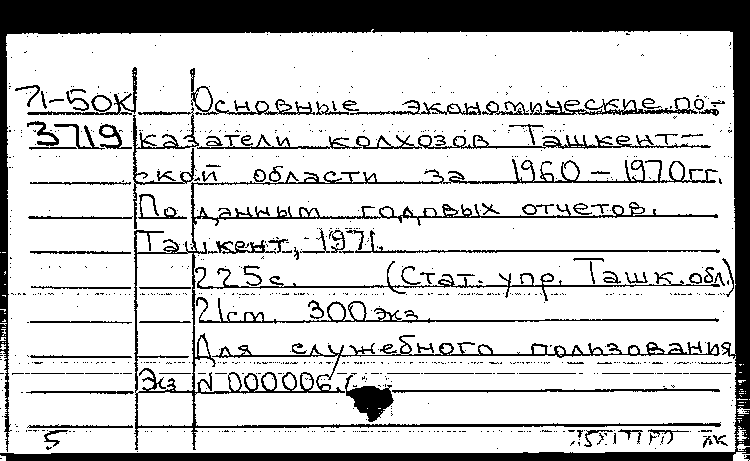 71-50К Основные экономические по-
3719 казатели колхозов Ташкент-
ской области за 1960-1970гг.
По данным годовых отчетов.
Ташкент, 1971.
225с. (Стат. упр. Ташк. обл.)
21см. 300 экз.
Для служебного пользования
Экз N 000006.
5